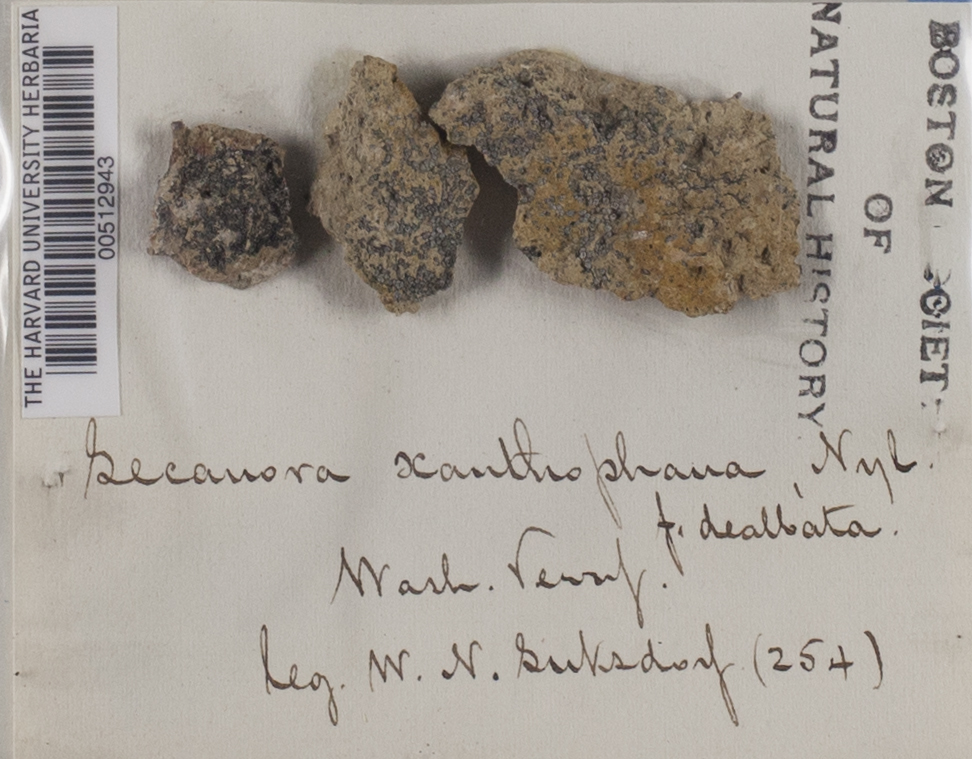 THE HARVARD UNIVERSITY HERBARIA
00512943
BOSTON SOCIET.
OF
NATURAL HISTORY
Lecanora xanthophana, Nyl.
f. dealbata.
Wash. Terry.
leg. W. N. Suksdorf (254)